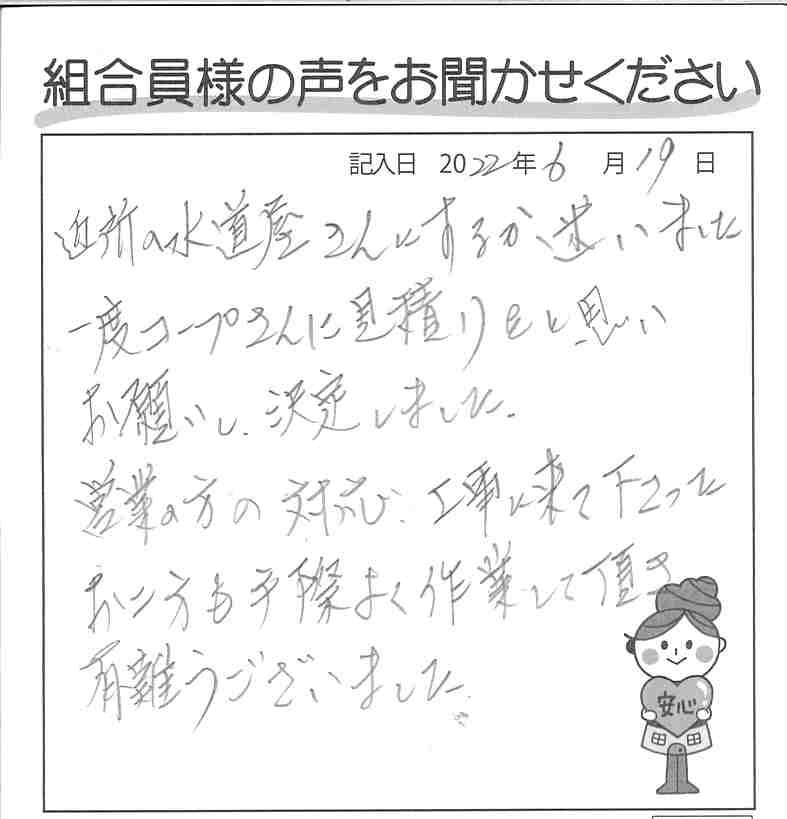 組合員様の声をお聞かせください
記入日 2022年6月19日
近所の水道屋さんにするか迷いました
一度コープさんに見積りをと思い
お願いし、決定しました。
営業の方の対応、工事に来て下さった
お二方も手際よく作業して頂き
有難うございました。
安心